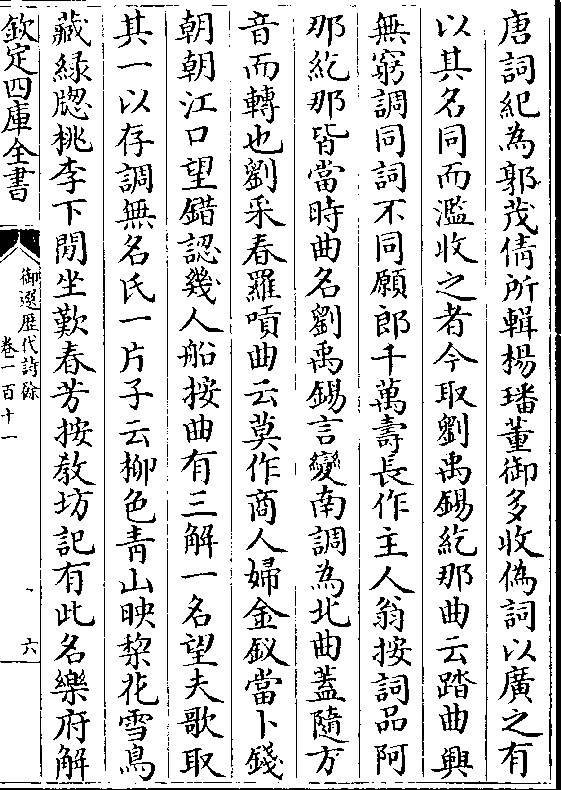 唐詞紀為郭茂倩所輯楊璠董御多收偽詞以廣之有
以其名同而濫收之者今取劉禹錫紇那曲云踏曲興
無窮調同詞不同願郎千萬壽長作主人翁按詞品阿
那紇那皆當時曲名劉禹錫言變南調為北曲蓋隨方
音而轉也劉采春羅嗊曲云莫作商人婦金釵當卜錢
朝朝江口望錯認幾人船按曲有三解一名望夫歌取
其一以存調無名氏一片子云柳色青山映棃花雪鳥
藏緑牕桃李下閒坐歎春芳按教坊記有此名樂府解
欽定四庫全書
御選歴代詩餘
卷一百十一
六